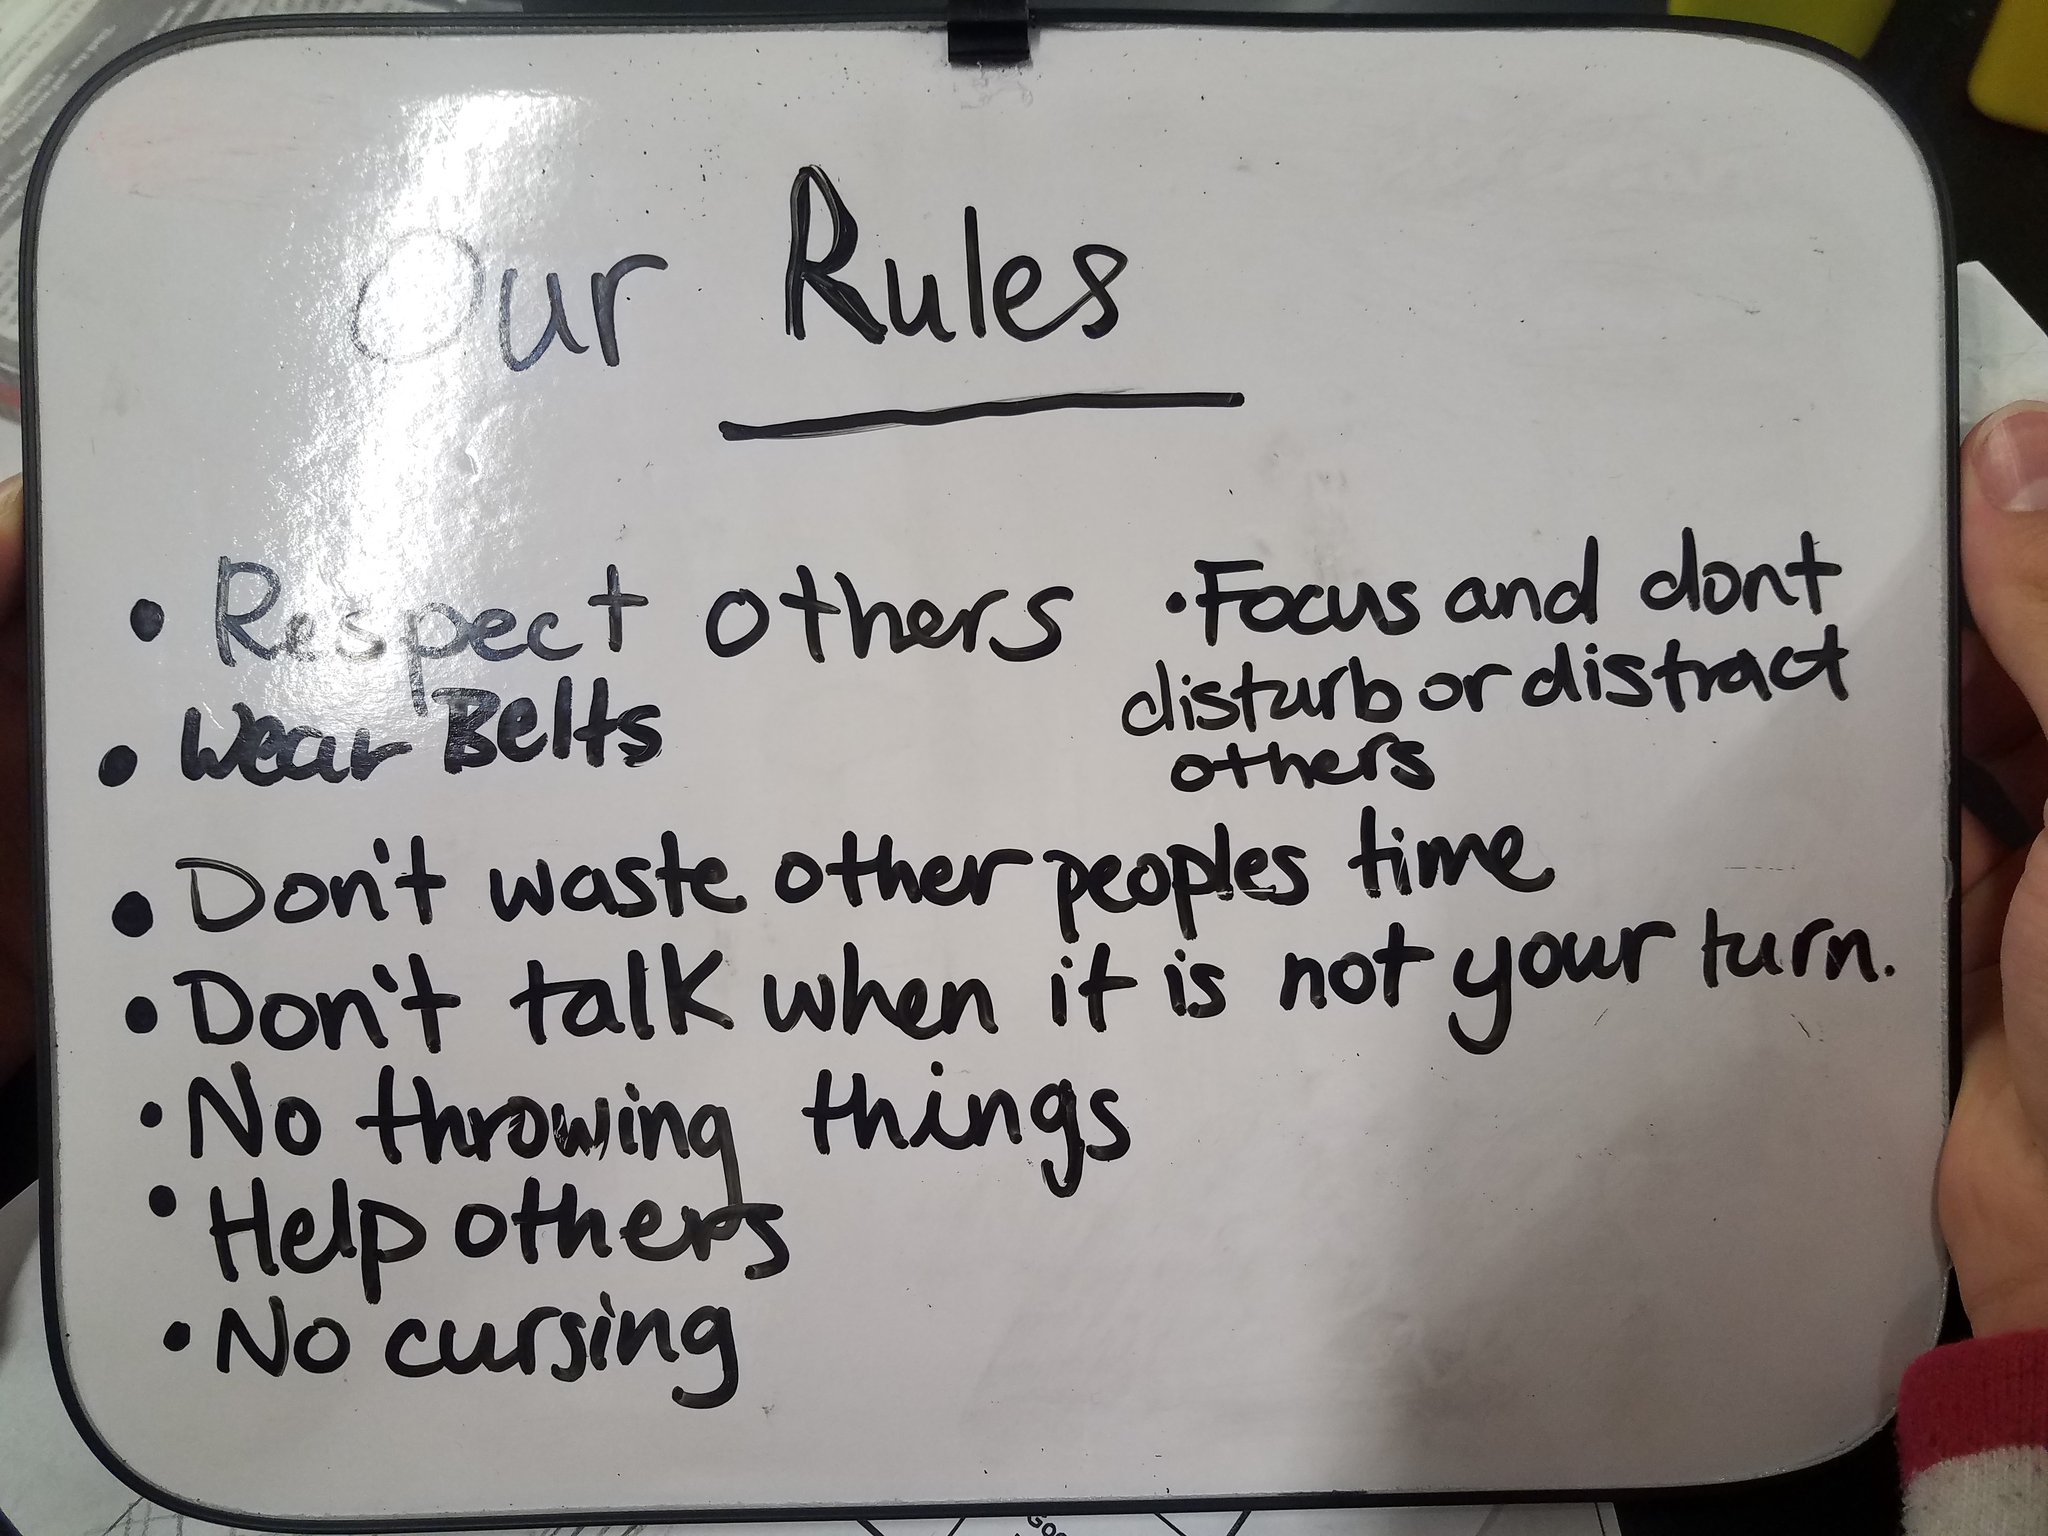 Our Rules
• Respect others
• Wear Belts
• Focus and dont
disturb or distract
others
• Don't waste other peoples time
• Don't talk when it is not your turn.
• No throwing things
• Help others
• No cursing